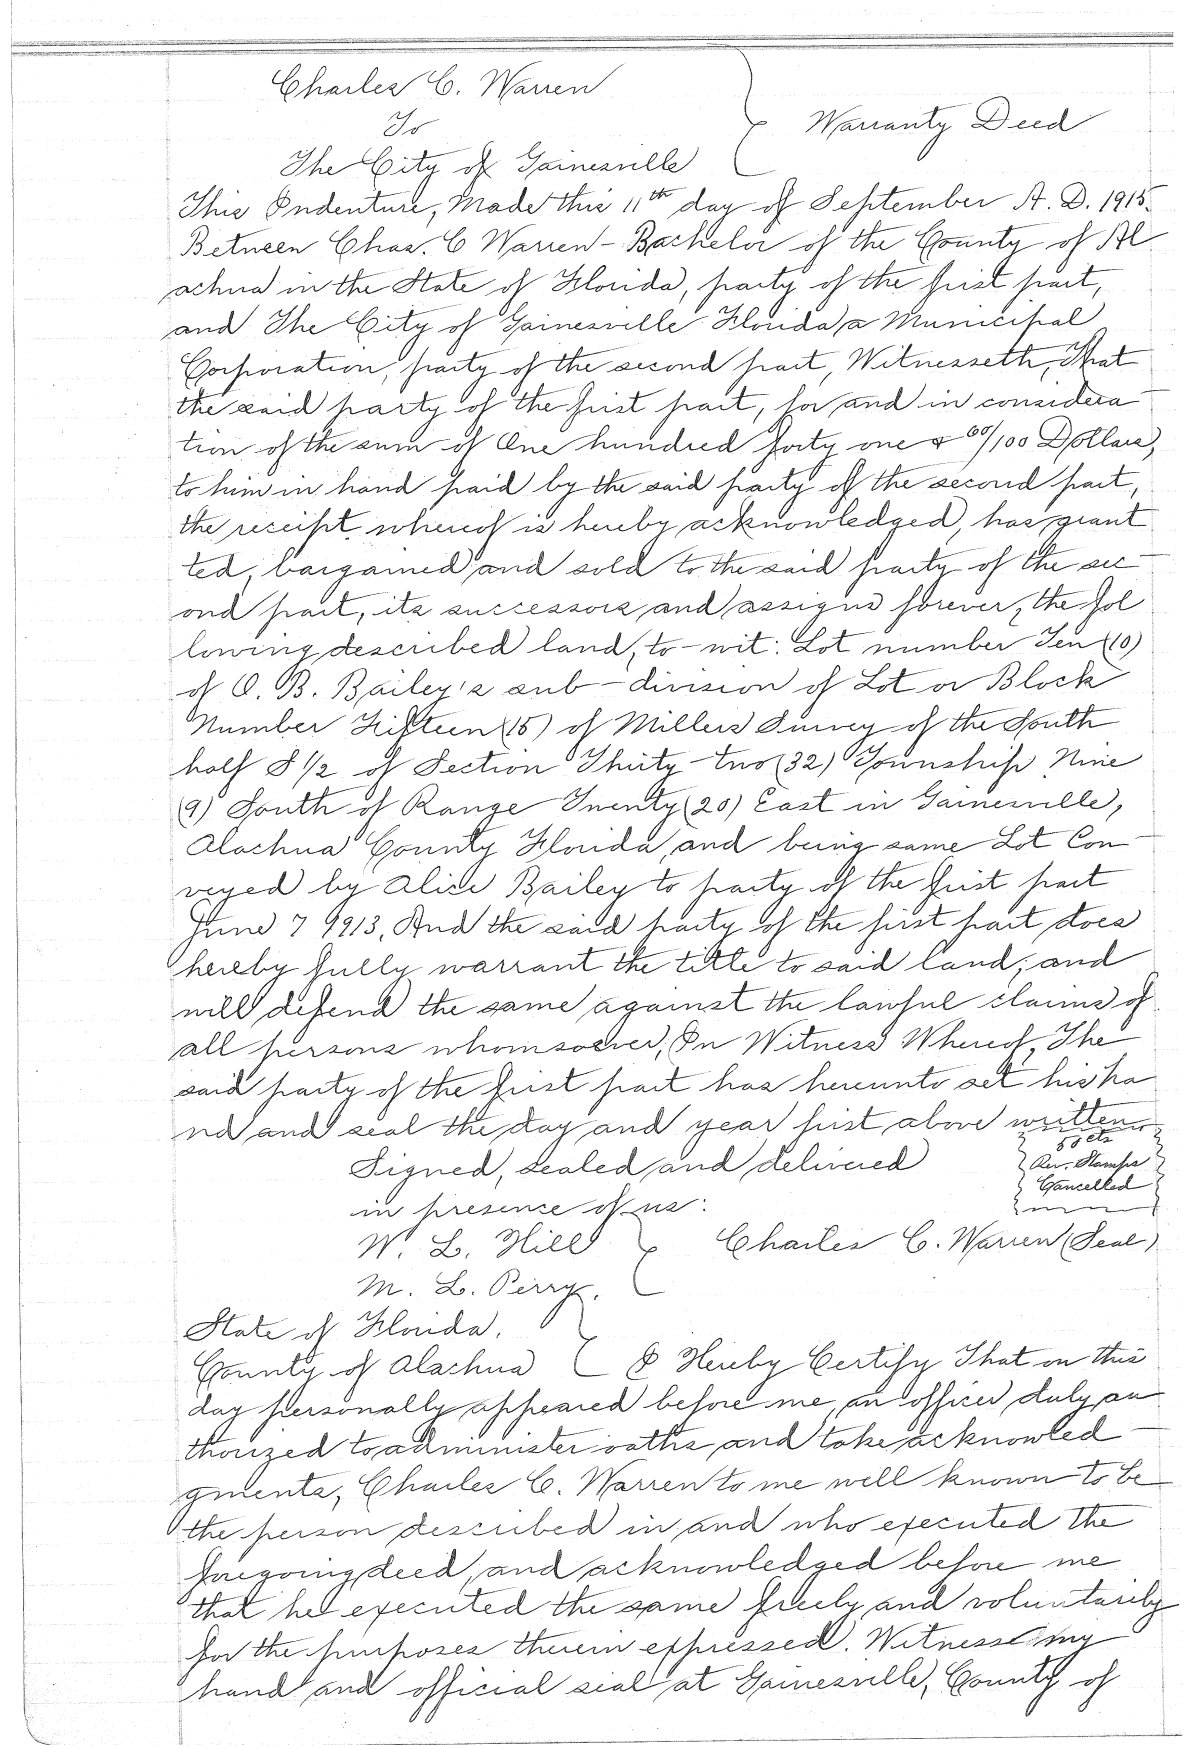 Charles C. Warren
To
Warranty Deed
The City of Gainesville
This Indenture, Made this 11th day of September A. D. 1915.
Between Chas. C Warren - Bachelor of the County of Al
achua in the State of Florida, party of the first part,
and The City of Gainesville Florida a Municipal
Corporation, party of the second part, Witnesseth, That
the said party of the first part, for and in considera
tion of the sum of One hundred forty one & 60/100 Dollars,
to him in hand paid by the said party of the second part,
the receipt whereof is hereby acknowledged, has grant
ted, bargained and sold to the said party of the sec
ond part, its successors and assigns forever, the fol
lowing described land, to-wit: Lot number Ten (10)
of O. B. Bailey's sub-division of Lot or Block
Number Fifteen (15) of Millers Survey of the South
half S 1/2 of Section Thirty-two (32) Township Nine
(9) South of Range Twenty (20) East in Gainesville,
Alachua County Florida, and being same Lot Con-
veyed by Alice Bailey to party of the first part
June 7 1913, And the said party of the first part does
hereby fully warrant the title to said land, and
will defend the same against the lawful claims of
all persons whomsoever, In Witness Whereof, The
said party of the first part has hereunto set his ha
nd and seal the day and year first above written
Signed, sealed and delivered
cts
Rev. Stamps
Cancelled
in presence of us:
W. L. Hill
Charles C. Warren (Seal)
M. L. Perry.
State of Florida.
County of Alachua
I Hereby Certify That on this
day personally appeared before me, an officer duly au
thorized to administer oaths and take acknowled-
gments, Charles C. Warren to me well known to be
the person described in and who executed the
foregoing deed, and acknowledged before me
that he executed the same freely and voluntarily
for the purposes therein expressed. Witness my
hand and official seal at Gainesville, County of